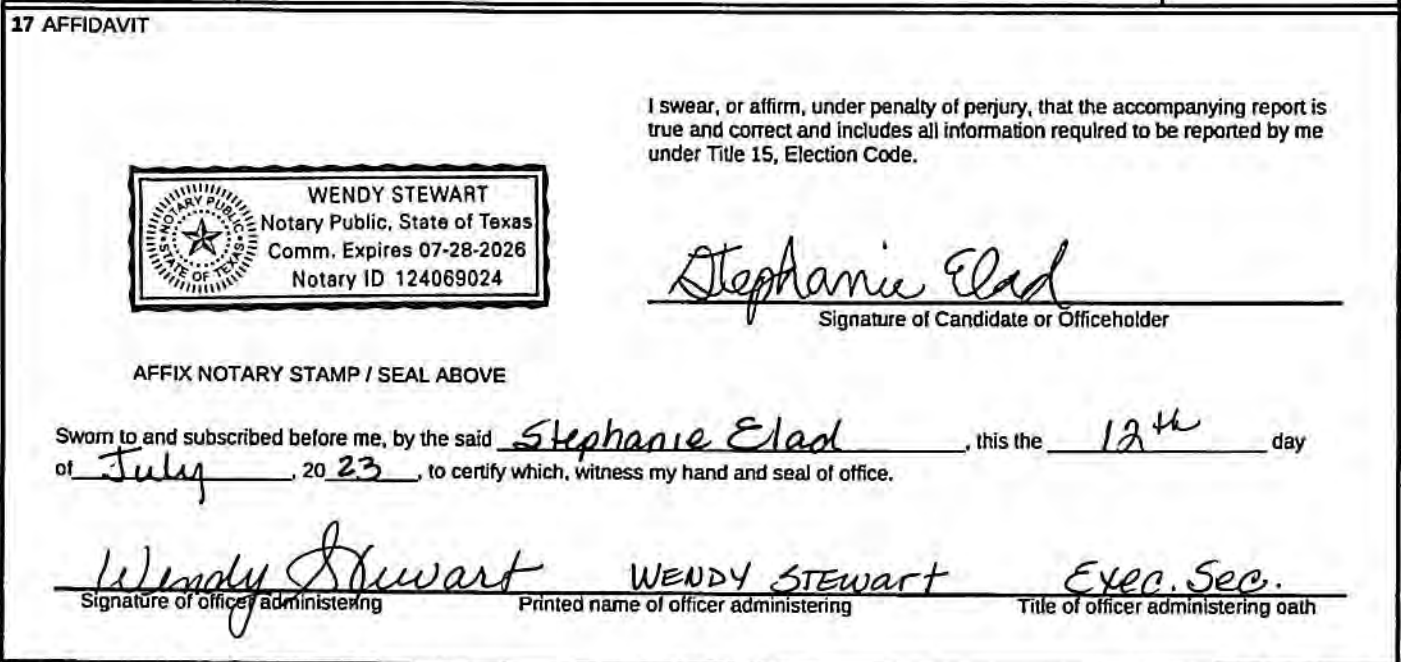 17 AFFIDAVIT
I swear, or affirm, under penalty of perjury, that the accompanying report is
true and correct and includes all information required to be reported by me
under Title 15, Election Code.
WENDY STEWART
Notary Public, State of Texas
Comm. Expires 07-28-2026
Notary ID 124069024
NOTARY PUBLIC
STATE OF TEXAS
Stephanie Elad
Signature of Candidate or Officeholder
AFFIX NOTARY STAMP / SEAL ABOVE
Sworn to and subscribed before me, by the said Stephanie Elad, this the 12th day
of July, 20 23, to certify which, witness my hand and seal of office.
Wendy Stewart WENDY STEWART Exec. Sec.
Signature of officer administering Printed name of officer administering Title of officer administering oath